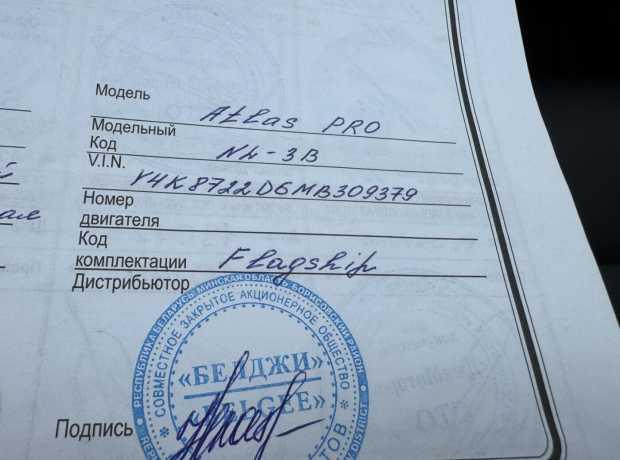 Модель Atlas PRO
Модельный
Код NL-3B
V.I.N. Y4K8722D6MB309379
Номер
двигателя
Код
комплектации Flagship
Дистрибьютор
РЕСПУБЛИКА БЕЛАРУСЬ МИНСКАЯ ОБЛАСТЬ БОРИСОВСКИЙ РАЙОН
СОВМЕСТНОЕ ЗАКРЫТОЕ АКЦИОНЕРНОЕ ОБЩЕСТВО
«БЕЛДЖИ»
Подпись